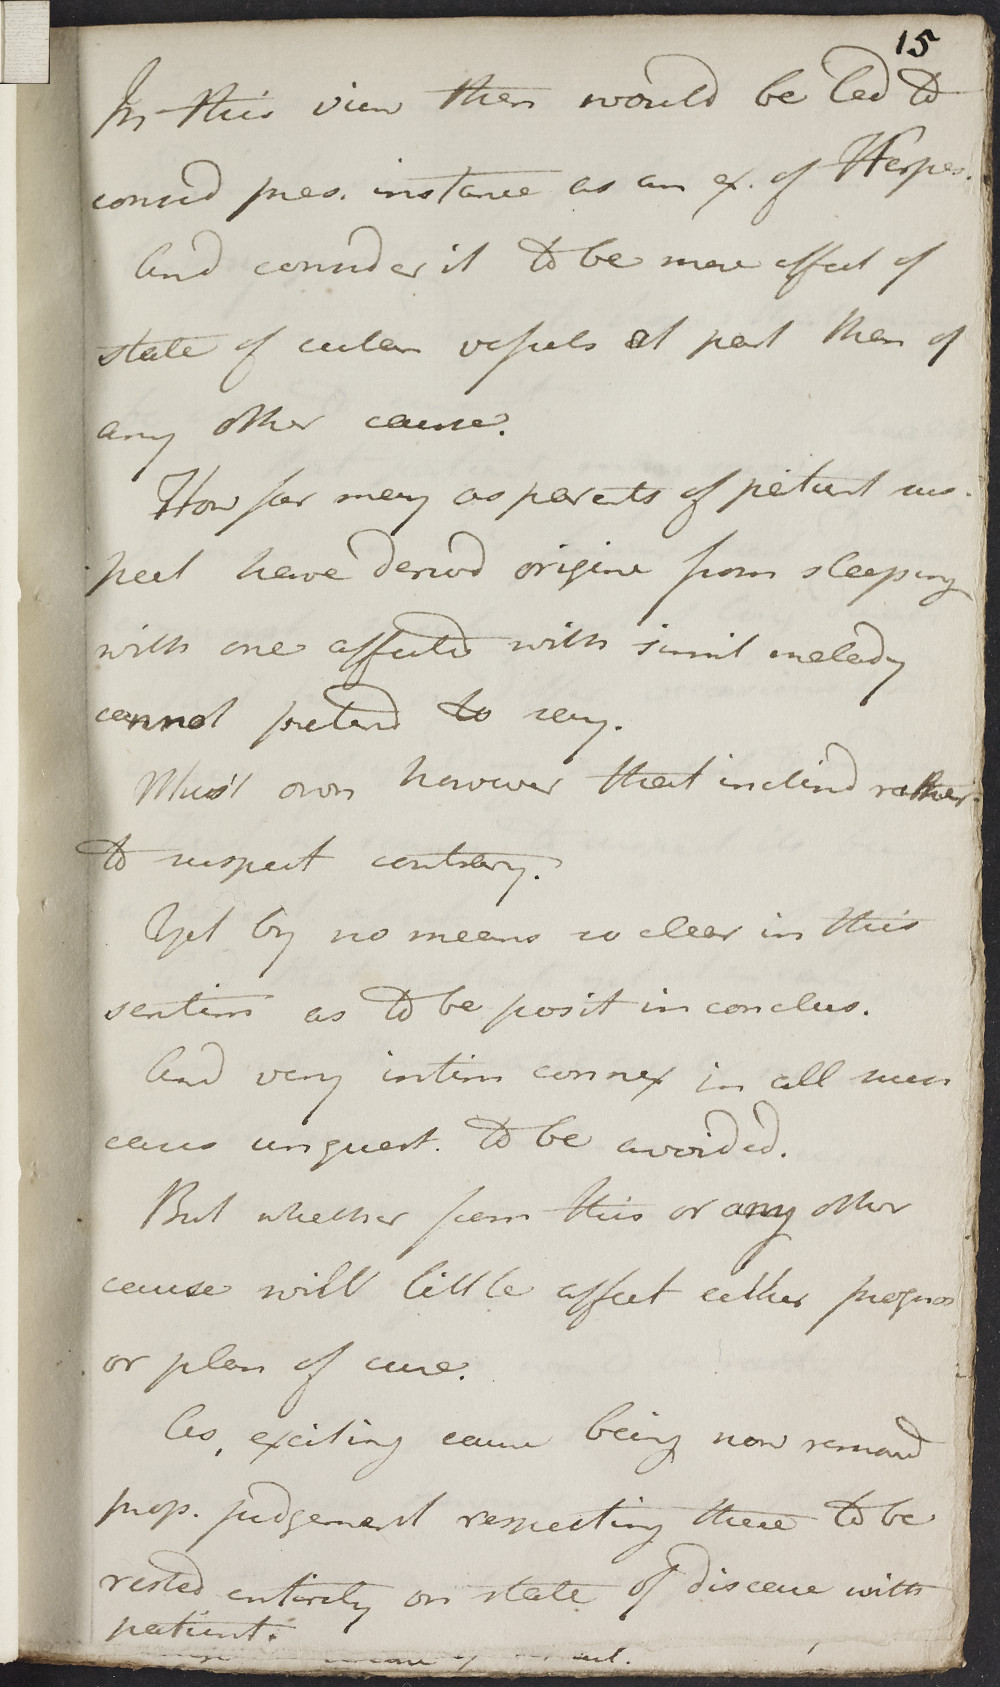 15
In this view then would be led to
consid pres. instance as an ex. of Herpes.
And consider it to be mere effect of
state of cutan vessels at part than of
any other cause.
How far may as parents of patient sus-
pect have derivd origine from sleeping
with one affected with simil malady
cannot pretend to say.
Must own however that inclind rather
to suspect contrary.
Yet by no means so clear in this
sentim as to be posit in conclus.
And very intim connex in all such
cases unquest. to be avoided.
But whether from this or any other
cause will little affect either prognos
or plan of cure.
As, exciting cause being now removd
prop. judgement respecting these to be
rested entirely on state of disease with
patient.